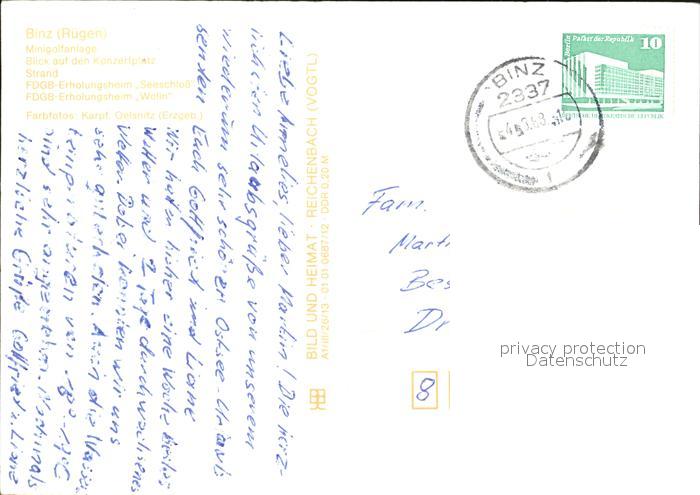 Binz (Rügen)
Minigolfanlage
Blick auf den Konzertplatz
Strand
FDGB-Erholungsheim „Seeschloß"
FDGB-Erholungsheim „Wolin"
Farbfotos: Karpf, Oelsnitz (Erzgeb.)
Liebe Annelies, lieber Martin! Die herz-
lichsten Urlaubsgrüße von unserem
wiederum sehr schönen Ostsee-Urlaub
senden Euch Gottfried und Liane
Wir hatten bisher eine Woche
Wetter und 2 Tage durchwachsenes
Wetter. Dabei können wir uns
sehr gut erholen. Auch die Wasser-
temperaturen von
sind sehr angenehm. Nochmals
herzliche Grüße Gottfried u. Liane
BILD UND HEIMAT · REICHENBACH (VOGTL)
A1/III/26/13 · 01 01 0687/12 · DDR 0,20 M
BINZ
2337
1
Berlin Palast der Republik
10
DEUTSCHE DEMOKRATISCHE REPUBLIK
Fam.
Marti
Bes
Dr
8
privacy protection
Datenschutz